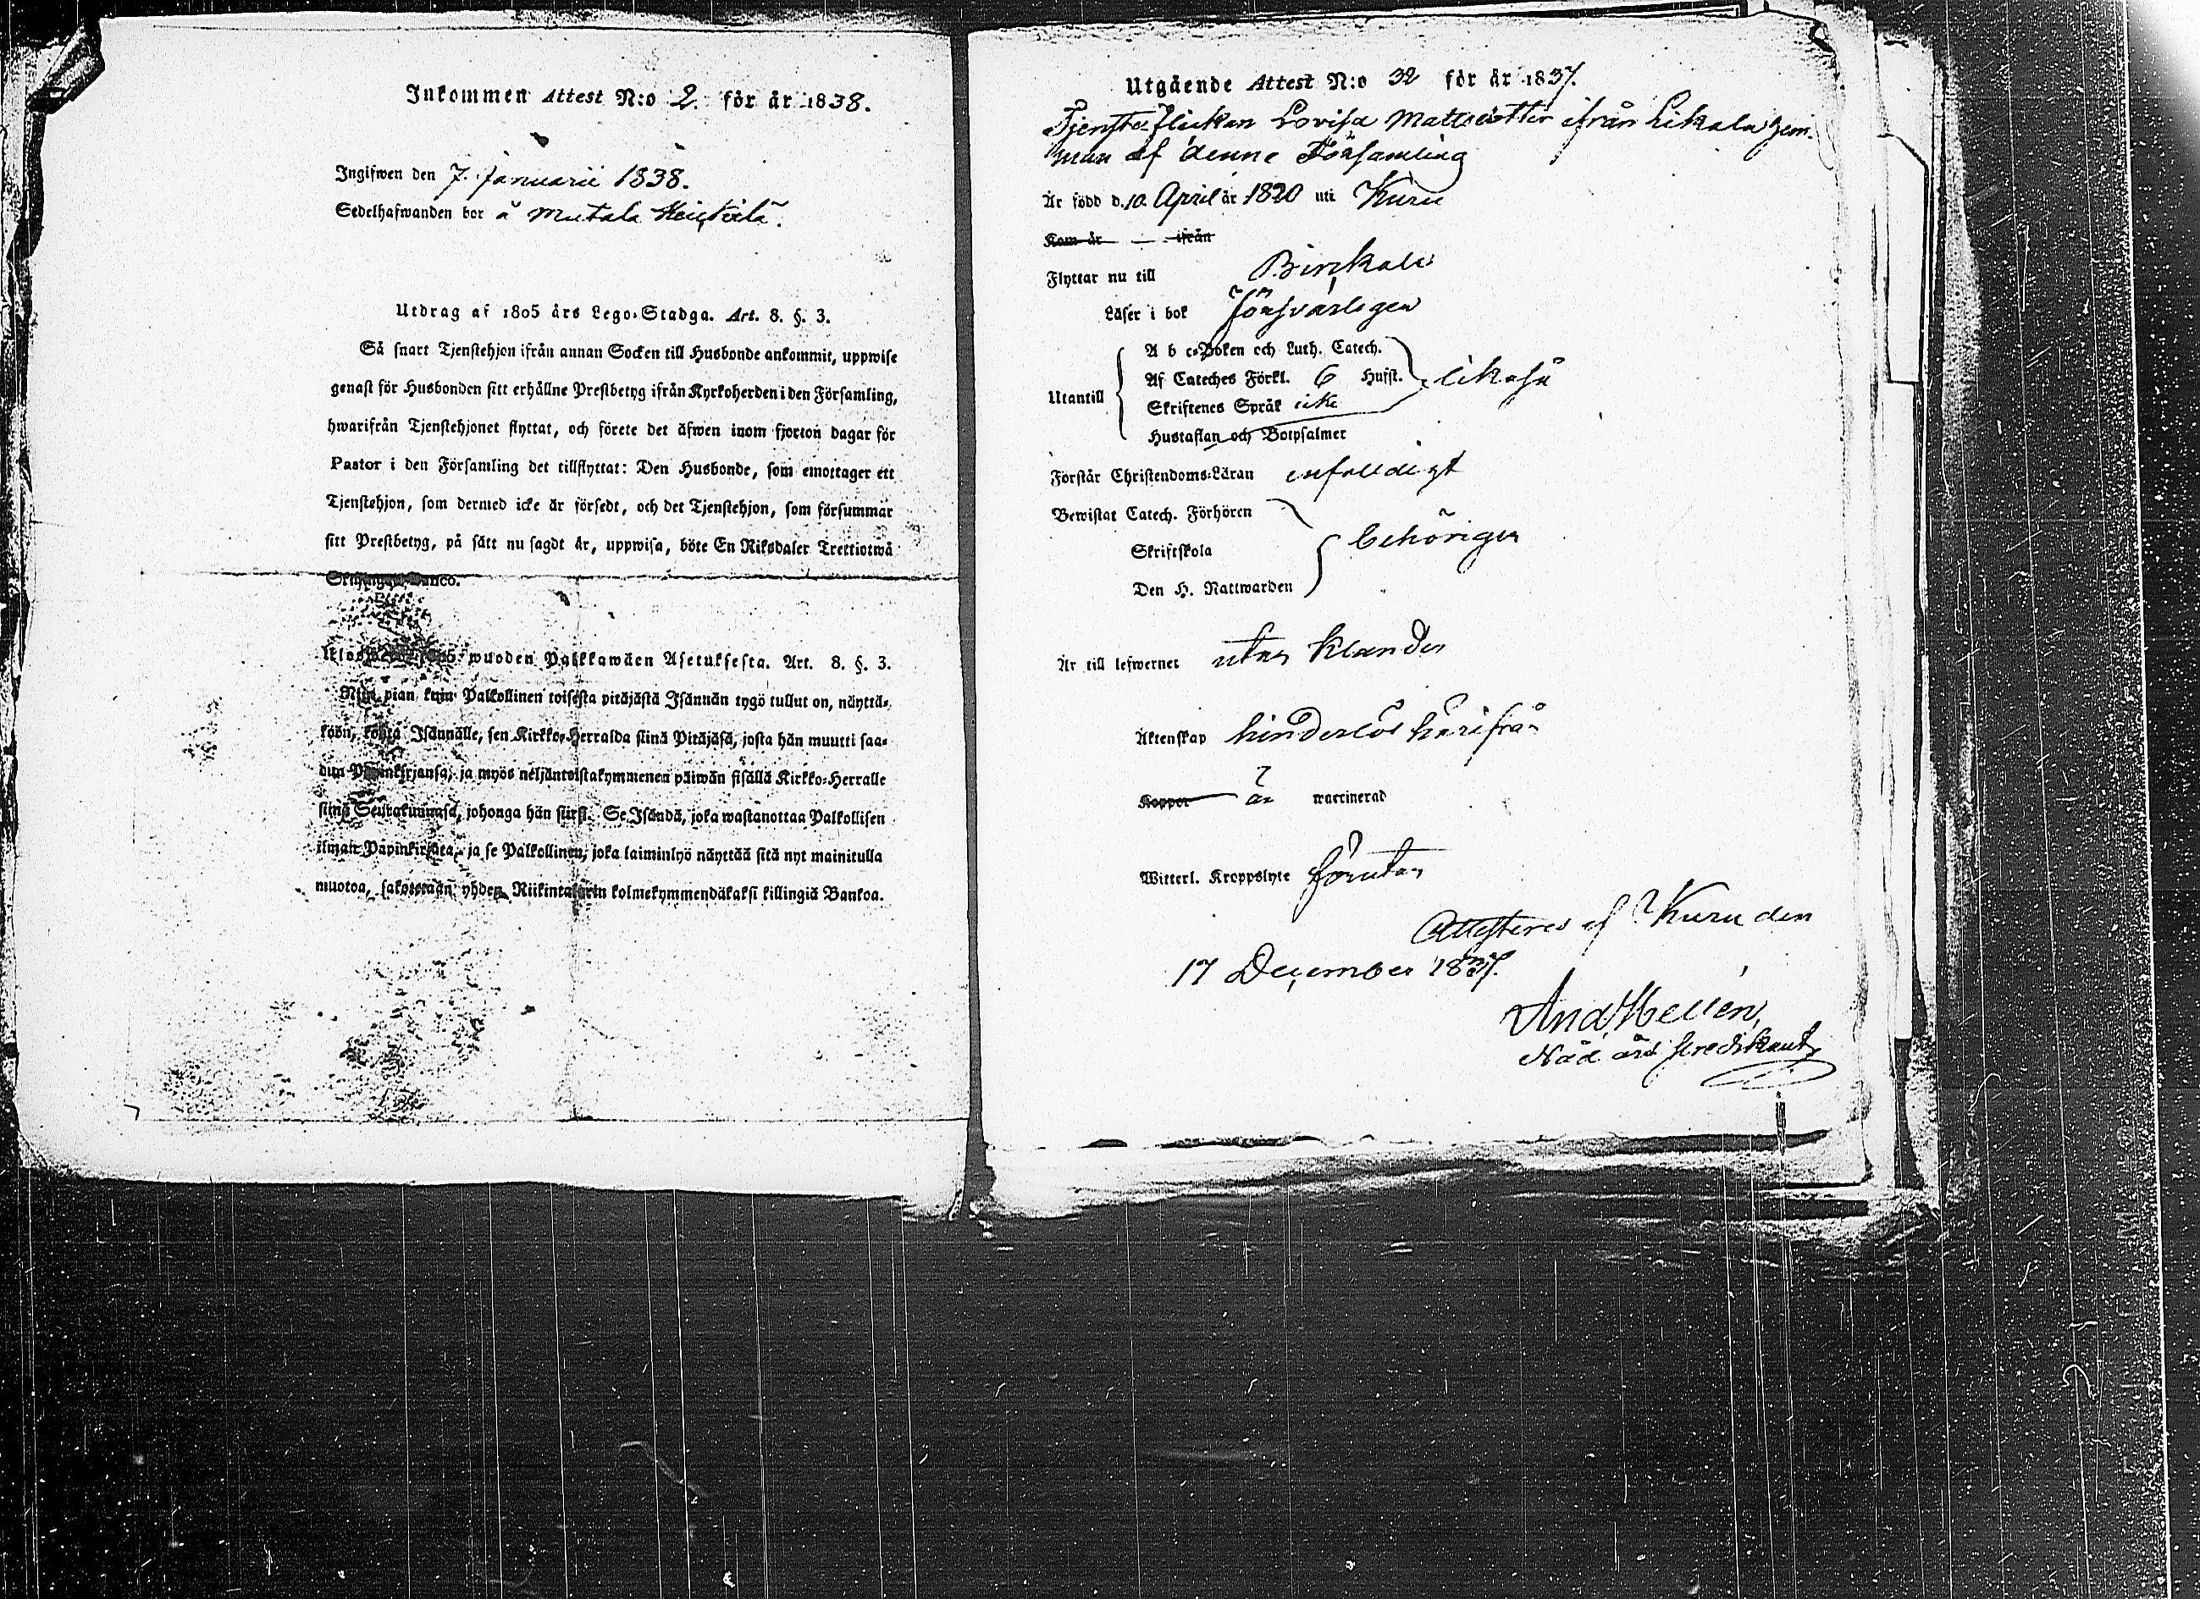 Inkommen Attest N:o 2. för år 1838.
Ingifwen den 7. Januarii 1838.
Sedelhafwanden bor å Mutala Heickilä.
Utdrag af 1805 års Lego-Stadga. Art. 8. §. 3.
Så snart Tjenstehjon ifrån annan Socken till Husbonde ankommit, uppwise
genast för Husbonden sitt erhållne Prestbetyg ifrån Kyrkoherden i den Församling,
hwarifrån Tjenstehjonet flyttat, och förete det äfwen inom fjorton dagar för
Pastor i den Församling det tillflyttat: Den Husbonde, som emottager ett
Tjenstehjon, som dermed icke är försedt, och det Tjenstehjon, som försummar
sitt Prestbetyg, på sätt nu sagdt är, uppwisa, böte En Riksdaler Trettiotwå
Skillingar Banco.
Ulosweto 1805 wuoden Palkkawäen Asetuksesta. Art. 8. §. 3.
Niin pian kuin Palkollinen toisesta pitäjästä Isännän tygö tullut on, näyttä-
köön, kohta Isännälle, sen Kirkko-Herralda siinä Pitäjäsä, josta hän muutti saa-
dun Papinkirjansa, ja myös neljäntoistakymmenen päiwän sisällä Kirkko-Herralle
siinä Seurakunnasa, johonga hän siirsi. Se Isändä, joka wastanottaa Palkollisen
ilman Papinkirjata, ja se Palkollinen, joka laiminlyö näyttää sitä nyt mainitulla
muotoa, sakotetaan yhden Riikintalarin kolmekymmendäkaksi killingiä Bankoa.
Utgående Attest N:o 32 för år 1837.
Tjenste-flickan Lovisa Mattsdotter ifrån Likala hem-
man af denne Församling
Är född d. 10 April år 1820 uti Kuru
Kom år ifrån
Flyttar nu till Birckala
Läser i bok försvarligen
A b c-Boken och Luth. Catech.
Utantill Af Cateches Förkl. 6 Hufst. likaså
Skriftenes Språk icke
Hustaflan och Botpsalmer
Förstår Christendoms-Läran enfalldigt
Bewistat Catech. Förhören
Skriftskola behörigen
Den H. Nattwarden
Är till lefwernet utan klander
Äktenskap hinderlös härifrån
Koppor är waccinerad
Witterl. Kroppslyte förutan
Attesteres af Kuru den
17 December 1837.
And. Hellén,
Nåd. års predikant,